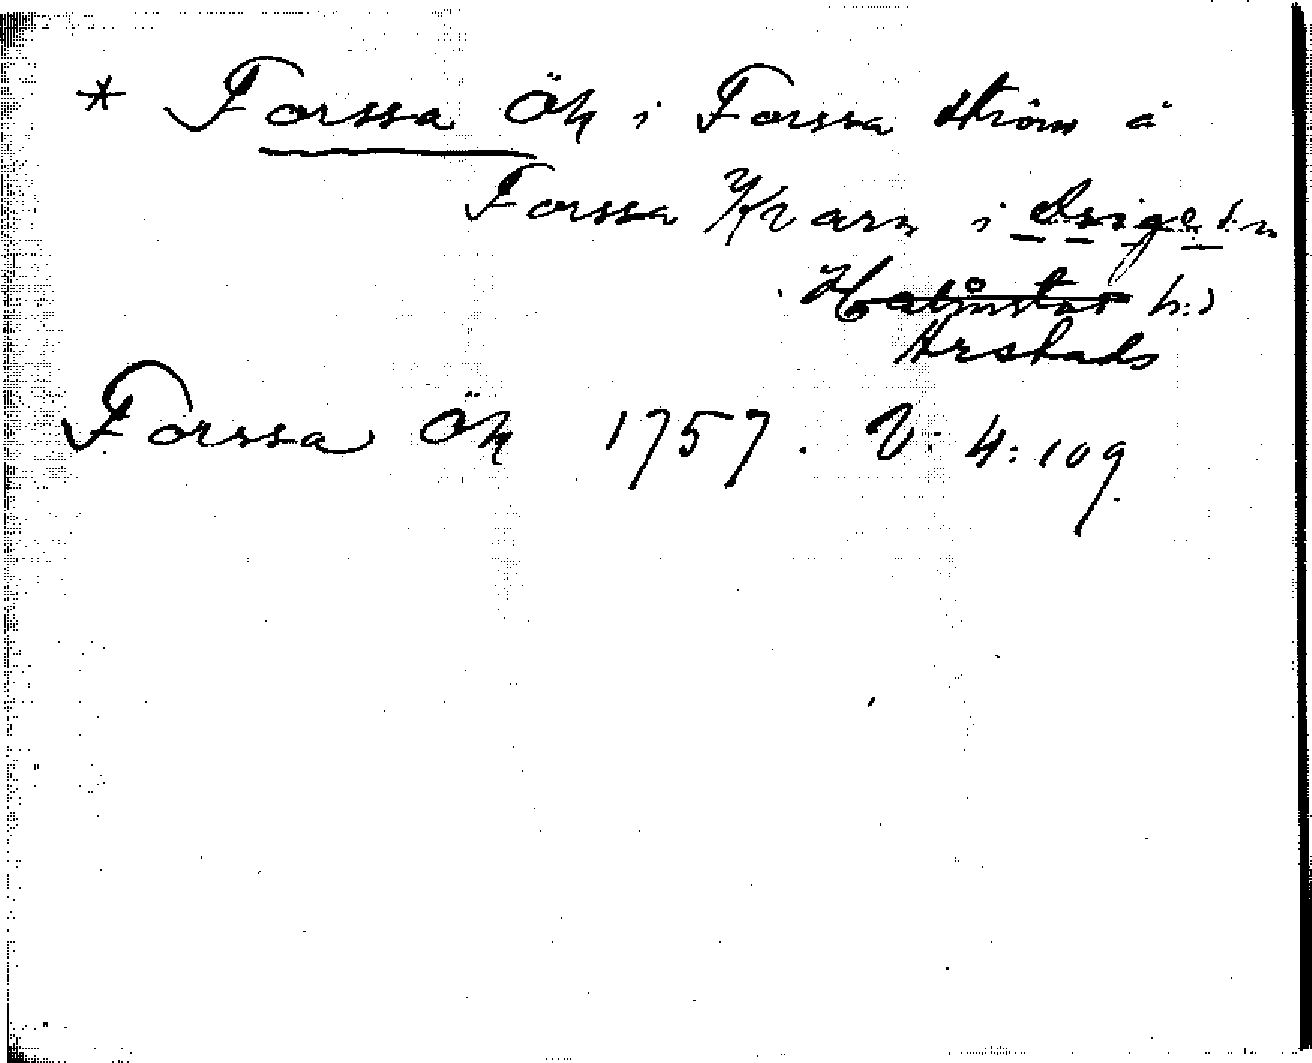 * Forssa Ök i Forssa ström å
Forssa Kvarn i Asige sn
Halmstad h:d
Årstads
Forssa Ök 1757. V: 4:109